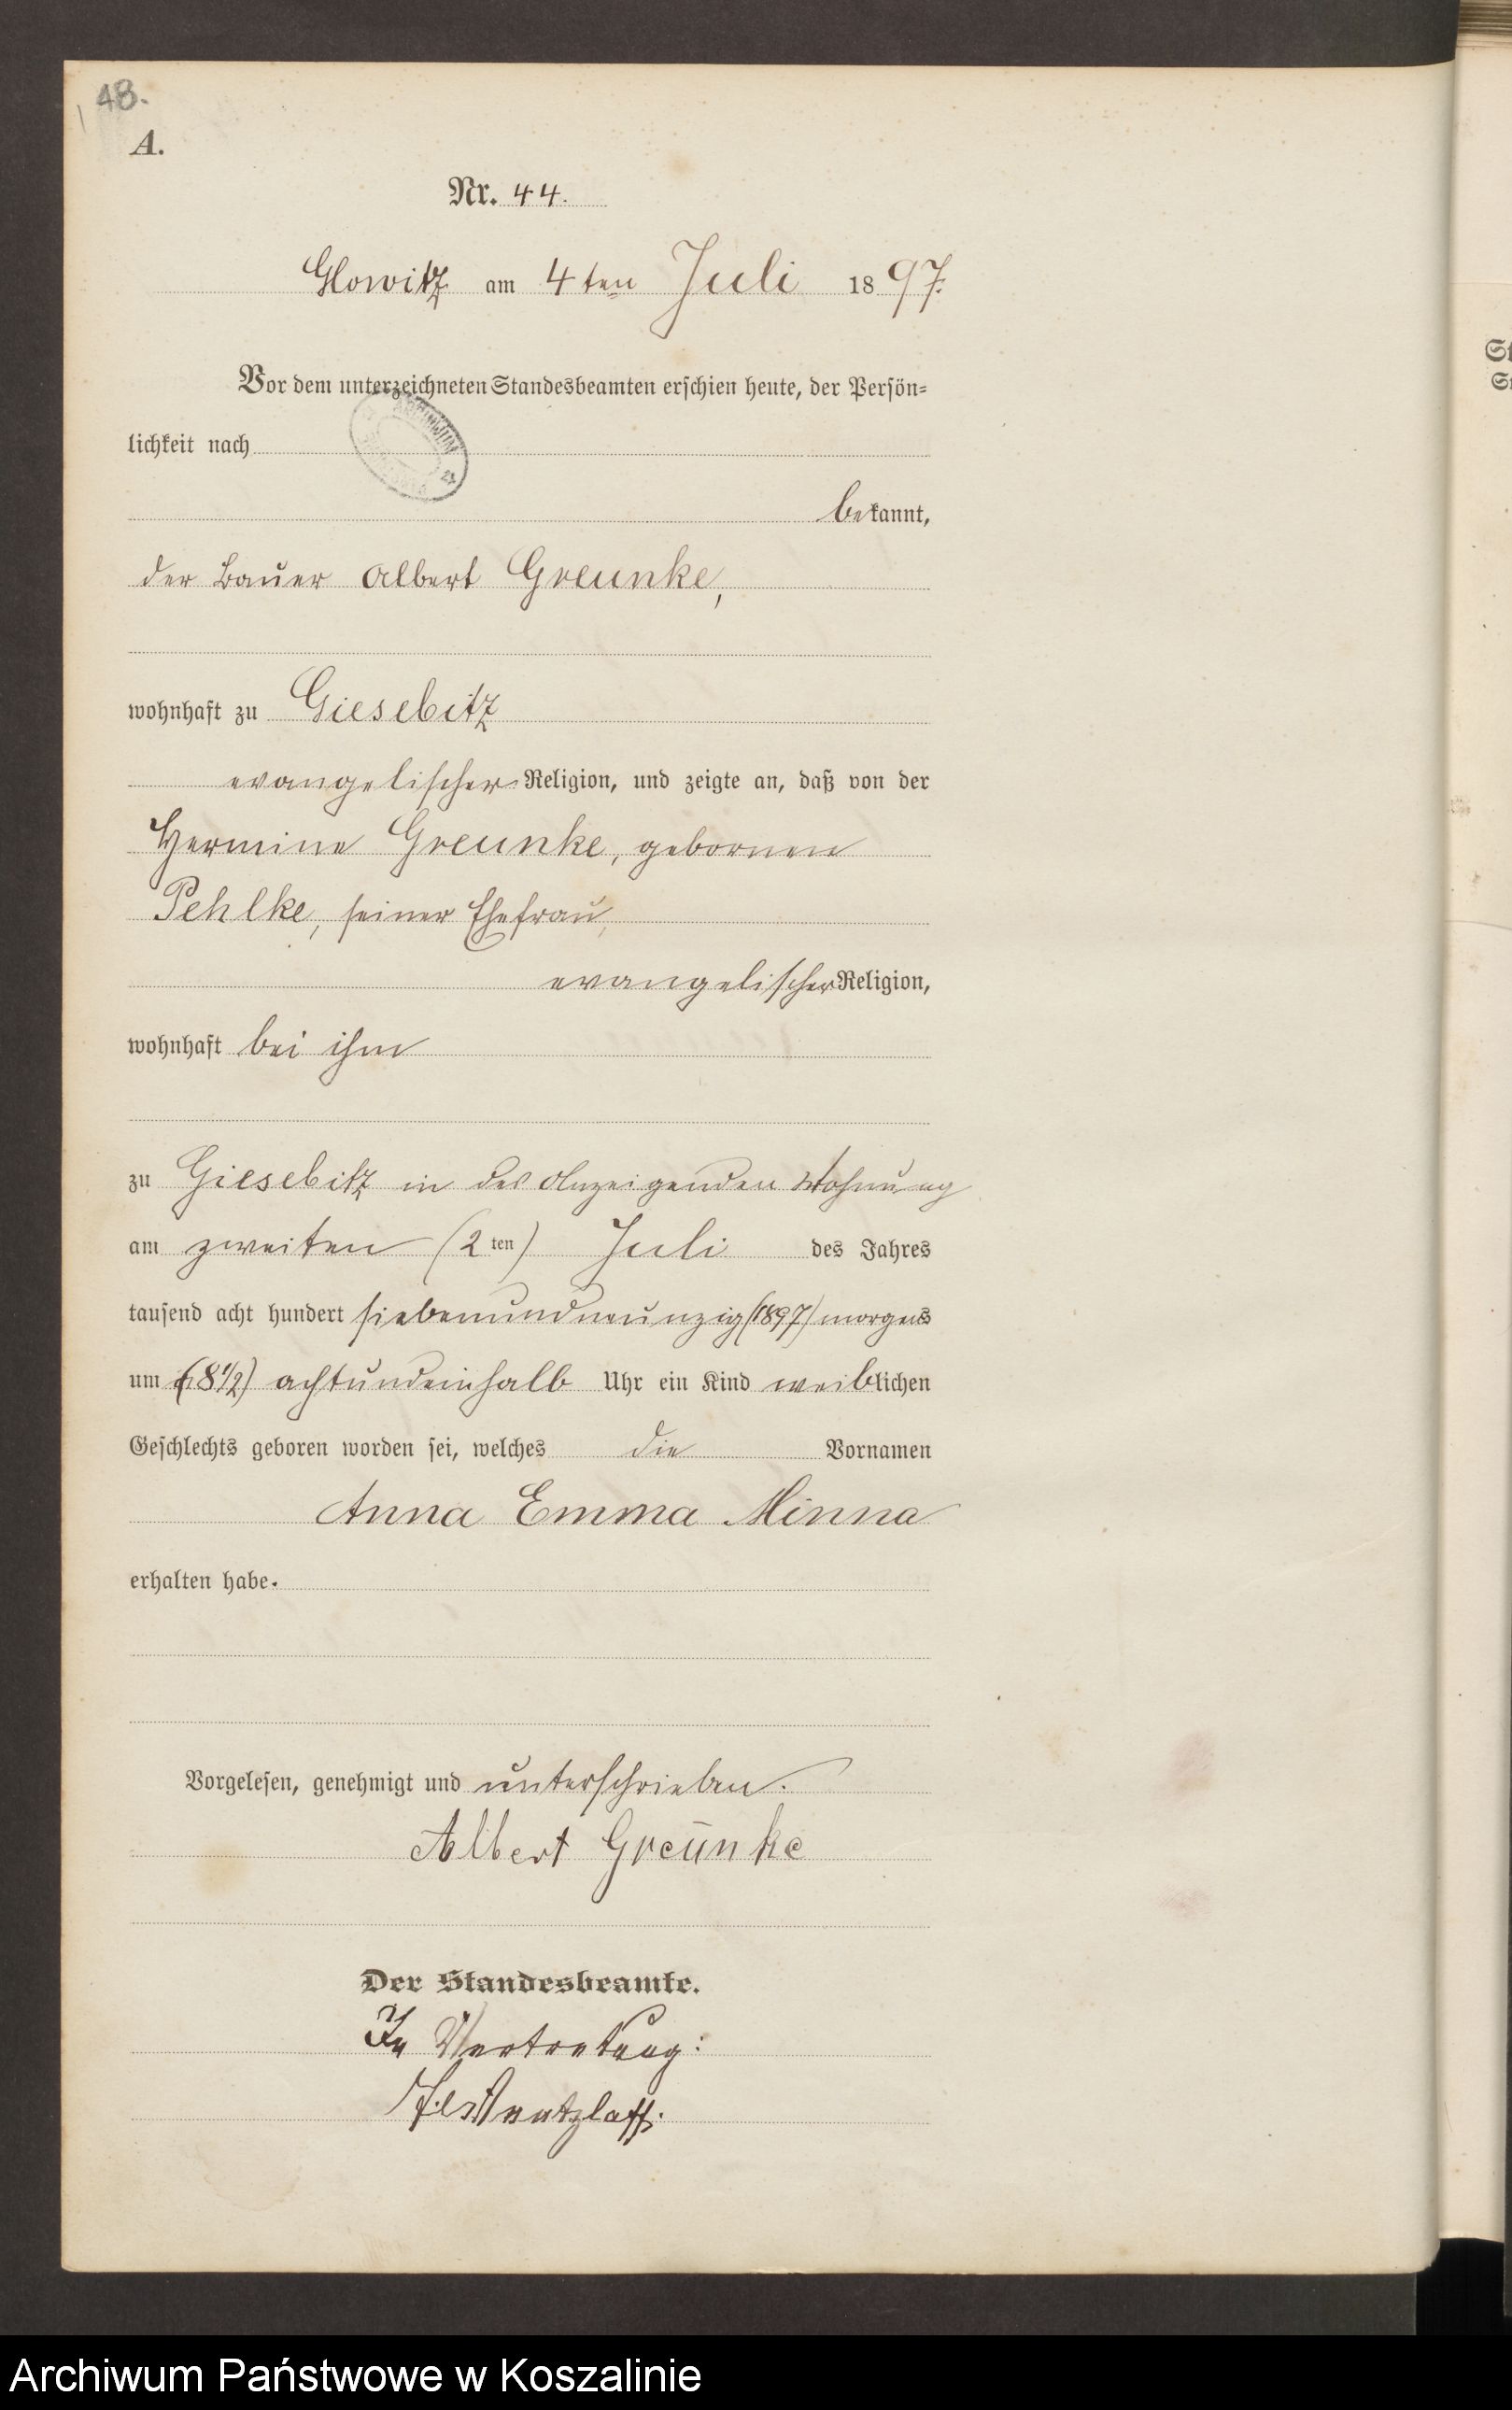 48.
A.
Nr. 44.
Glowitz am 4ten Juli 1897.
Vor dem unterzeichneten Standesbeamten erschien heute, der Persön-
lichkeit nach
bekannt,
der Bauer Albert Greunke,
wohnhaft zu Giesebitz
evangelischer Religion, und zeigte an, daß von der
Hermine Greunke, gebornen
Pehlke, seiner Ehefrau,
evangelischer Religion,
wohnhaft bei ihm
zu Giesebitz in des Anzeigenden Wohnung
am zweiten (2ten) Juli des Jahres
tausend acht hundert siebenundneunzig (1897) morgens
um (8 1/2) achtundeinhalb Uhr ein Kind weiblichen
Geschlechts geboren worden sei, welches die Vornamen
Anna Emma Minna
erhalten habe.
Vorgelesen, genehmigt und unterschrieben.
Albert Greunke
Der Standesbeamte.
In Vertretung:
Archiwum Państwowe w Koszalinie